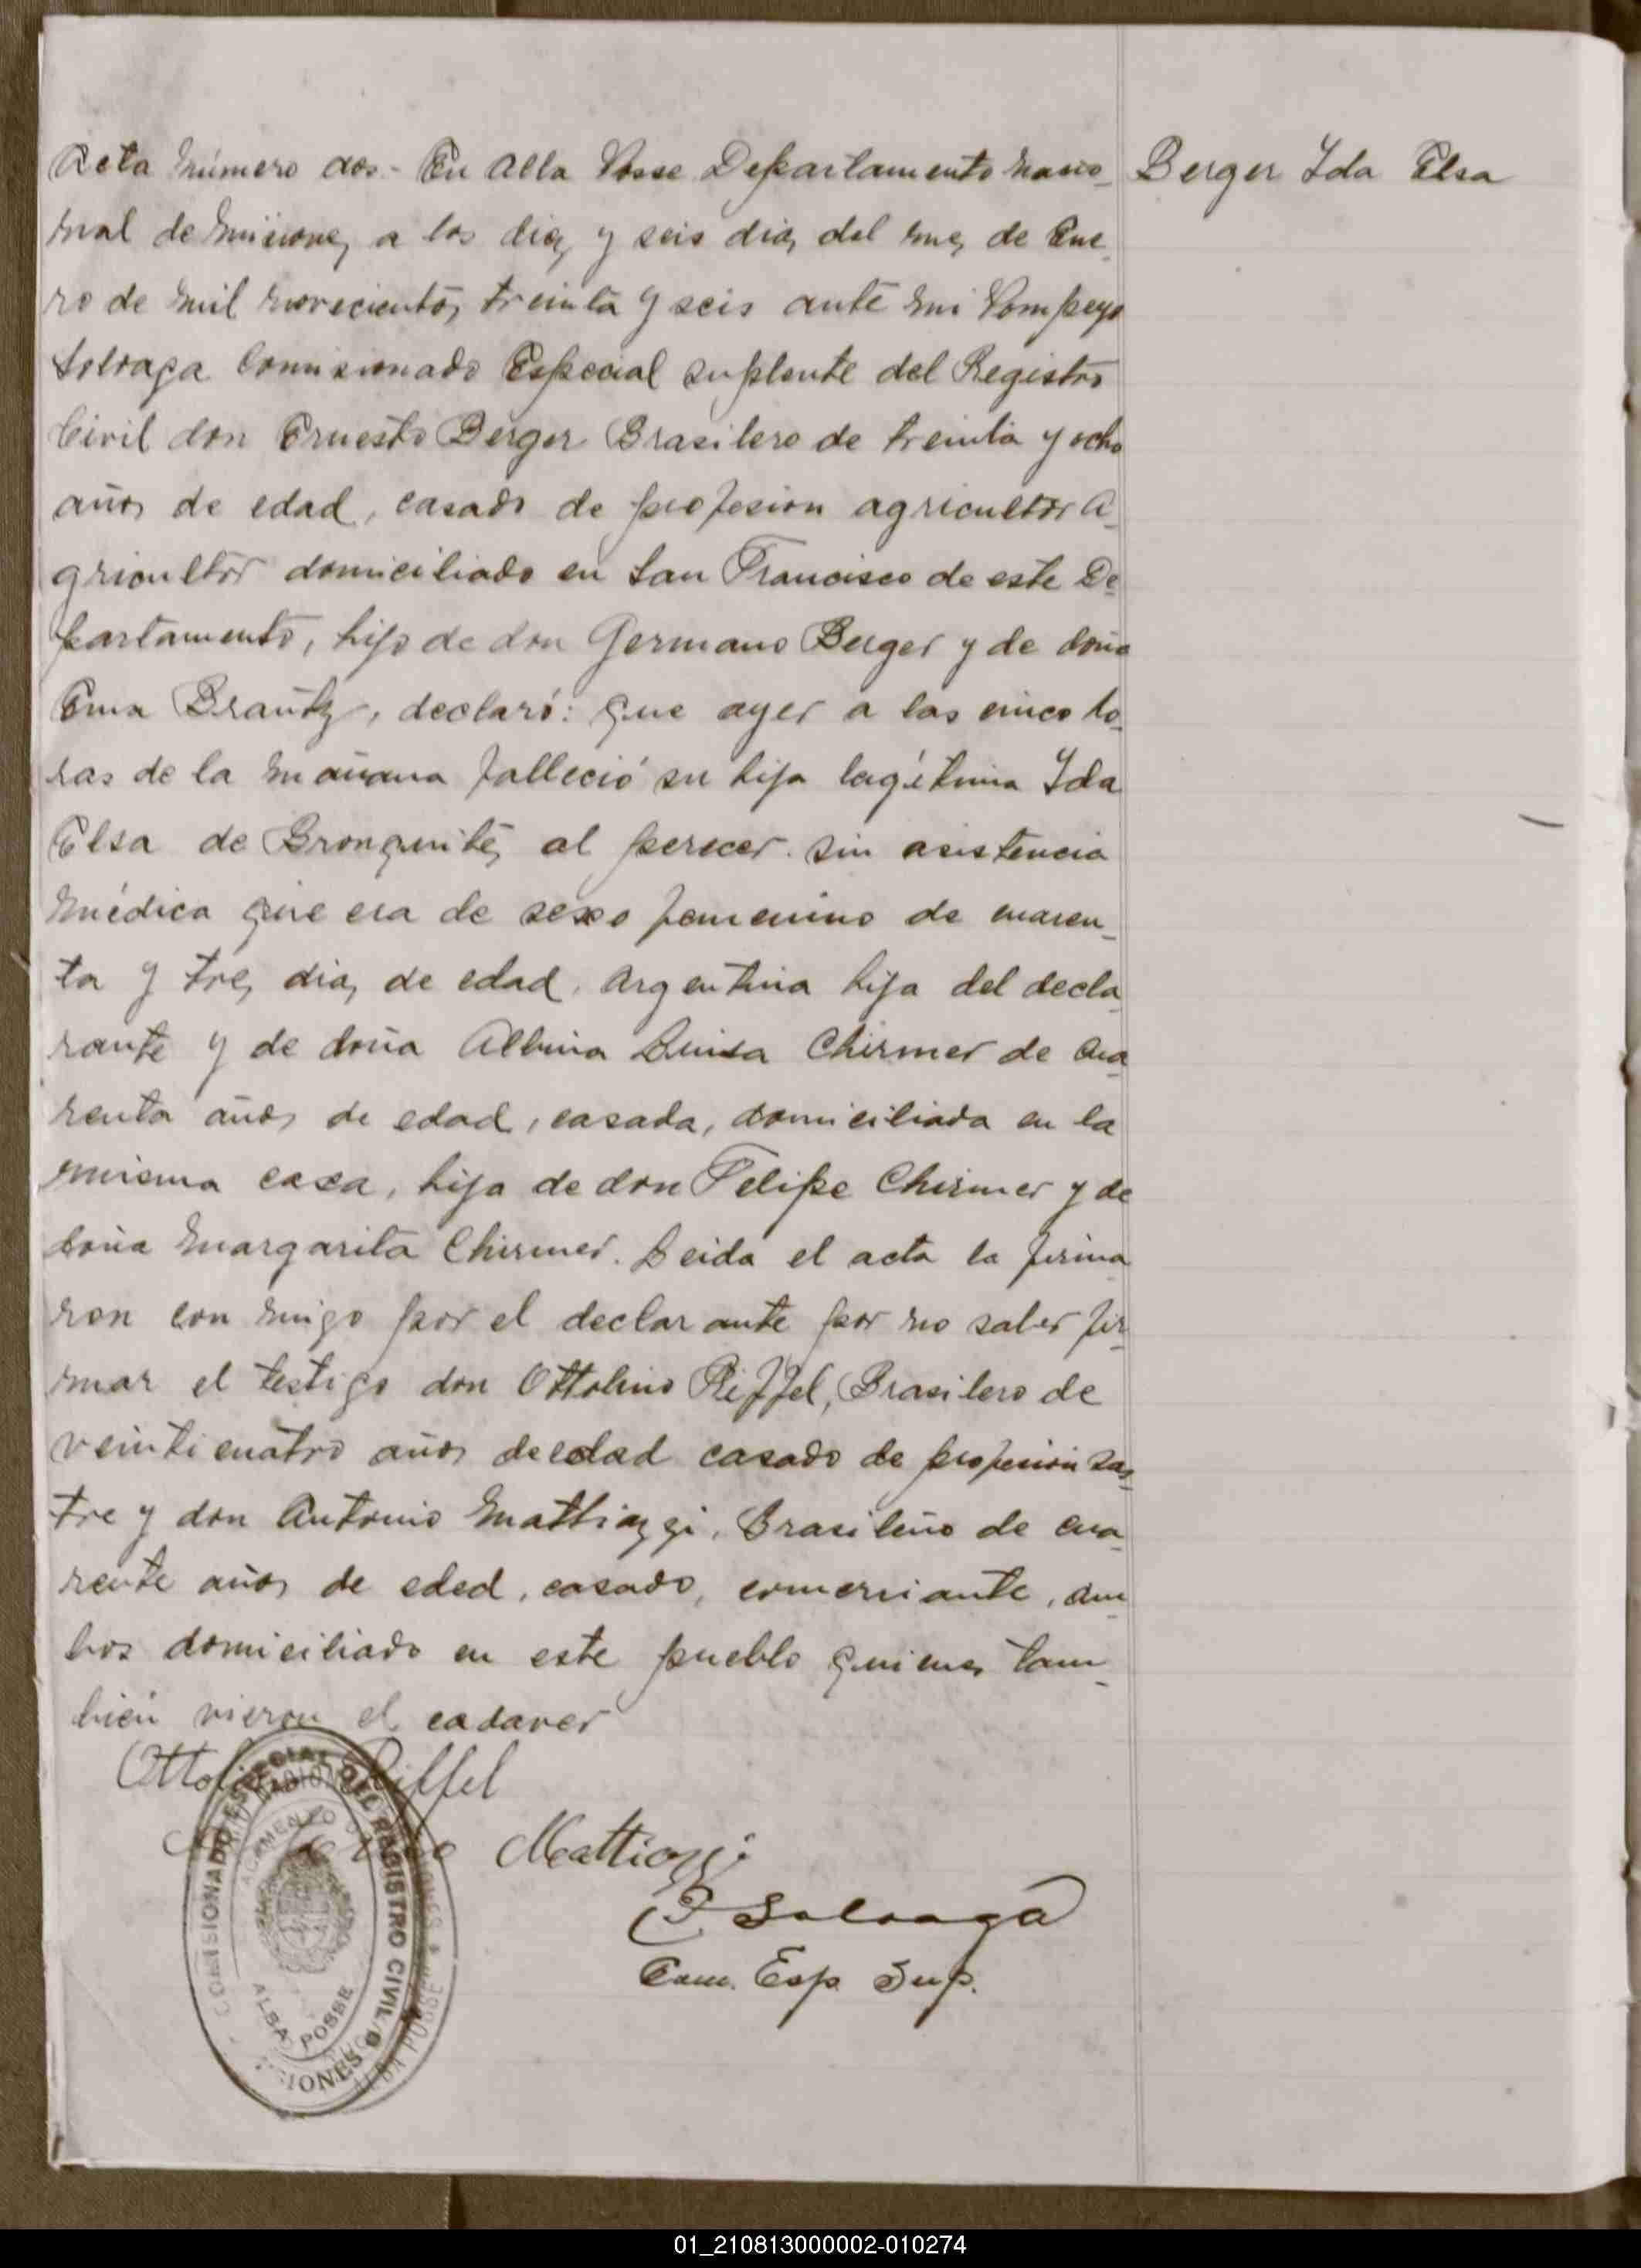 Acta número dos.- En Alba Posse Departamento nacio-
nal de Misiones, a los diez y seis dias del mes de Ene-
ro de mil novecientos treinta y seis ante mi Pompeyo
Solraga Comisionado Especial suplente del Registro
Civil don Ernesto Berger Brasilero de treinta y ocho
años de edad, casado de profesion agricultor a-
gricultor domiciliado en San Francisco de este De-
partamento, hijo de don Germano Berger y de doña
Ema Brautz, declaró: que ayer a las cinco ho-
ras de la mañana falleció su hija legítima Ida
Elsa de Bronquites al perecer. sin asistencia
médica que era de sexo femenino de cuaren-
ta y tres dias de edad, Argentina hija del decla-
rante y de doña Albina Luisa Chirmer de cua-
renta años de edad, casada, domiciliada en la
misma casa, hija de don Felipe Chirmer y de
doña Margarita Chirmer. Leida el acta la firma-
ron con migo por el declarante por no saber fir-
mar el testigo don Ottolino Riffel, Brasilero de
veinticuatro años de edad casado de profesión sas-
tre y don Antonio Mattiazzi, Brasileño de cua-
rente años de eded, casado, comerciante, am-
bos domiciliado en este pueblo quienes tam-
bién vieron el cadaver
Berger Ida Elsa
Ottolino Riffel
Mattiazzi
P Solraga
Com. Esp. Sup.
COMISIONADO ESPECIAL DEL REGISTRO CIVIL
ALBA POSSE
MISIONES
01_210813000002-010274